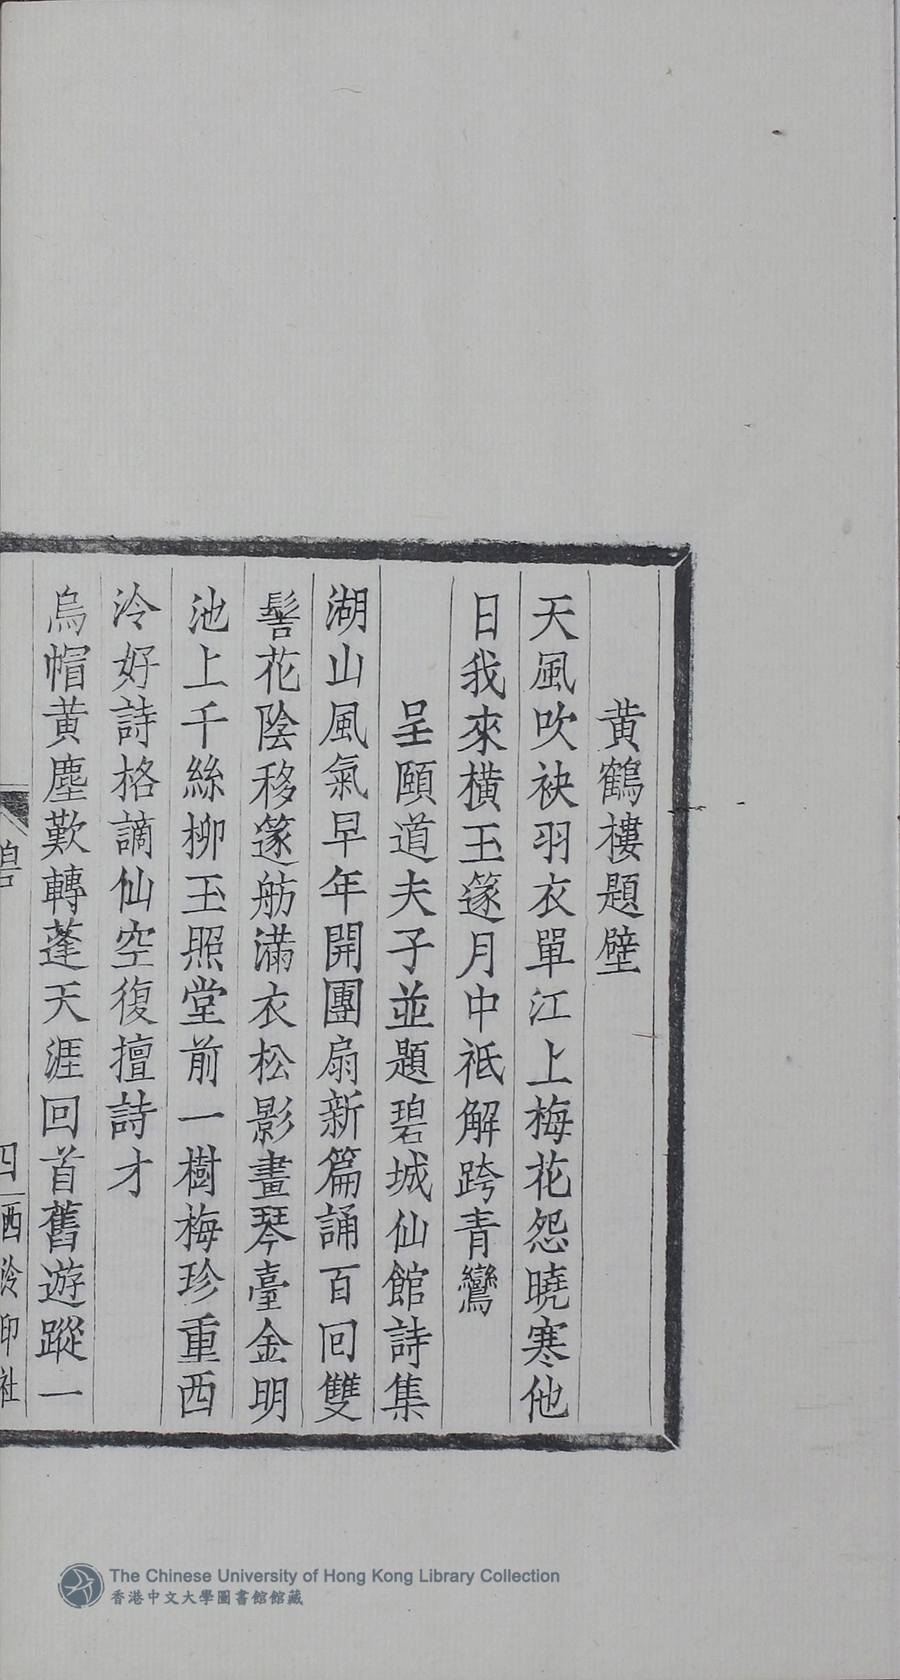 黄鶴樓題壁
天風吹袂羽衣單江上梅花怨曉寒他
日我來橫玉篴月中祗解跨青鸞
呈頤道夫子並題碧城仙館詩集
湖山風氣早年開團扇新篇誦百回雙
髻花陰移篴舫滿衣松影畫琴臺金明
池上千絲柳玉照堂前一樹梅珍重西
泠好詩格謫仙空復擅詩才
烏帽黃塵歎轉蓬天涯回首舊遊蹤一
四
西泠印社
The Chinese University of Hong Kong Library Collection
香港中文大學圖書館館藏